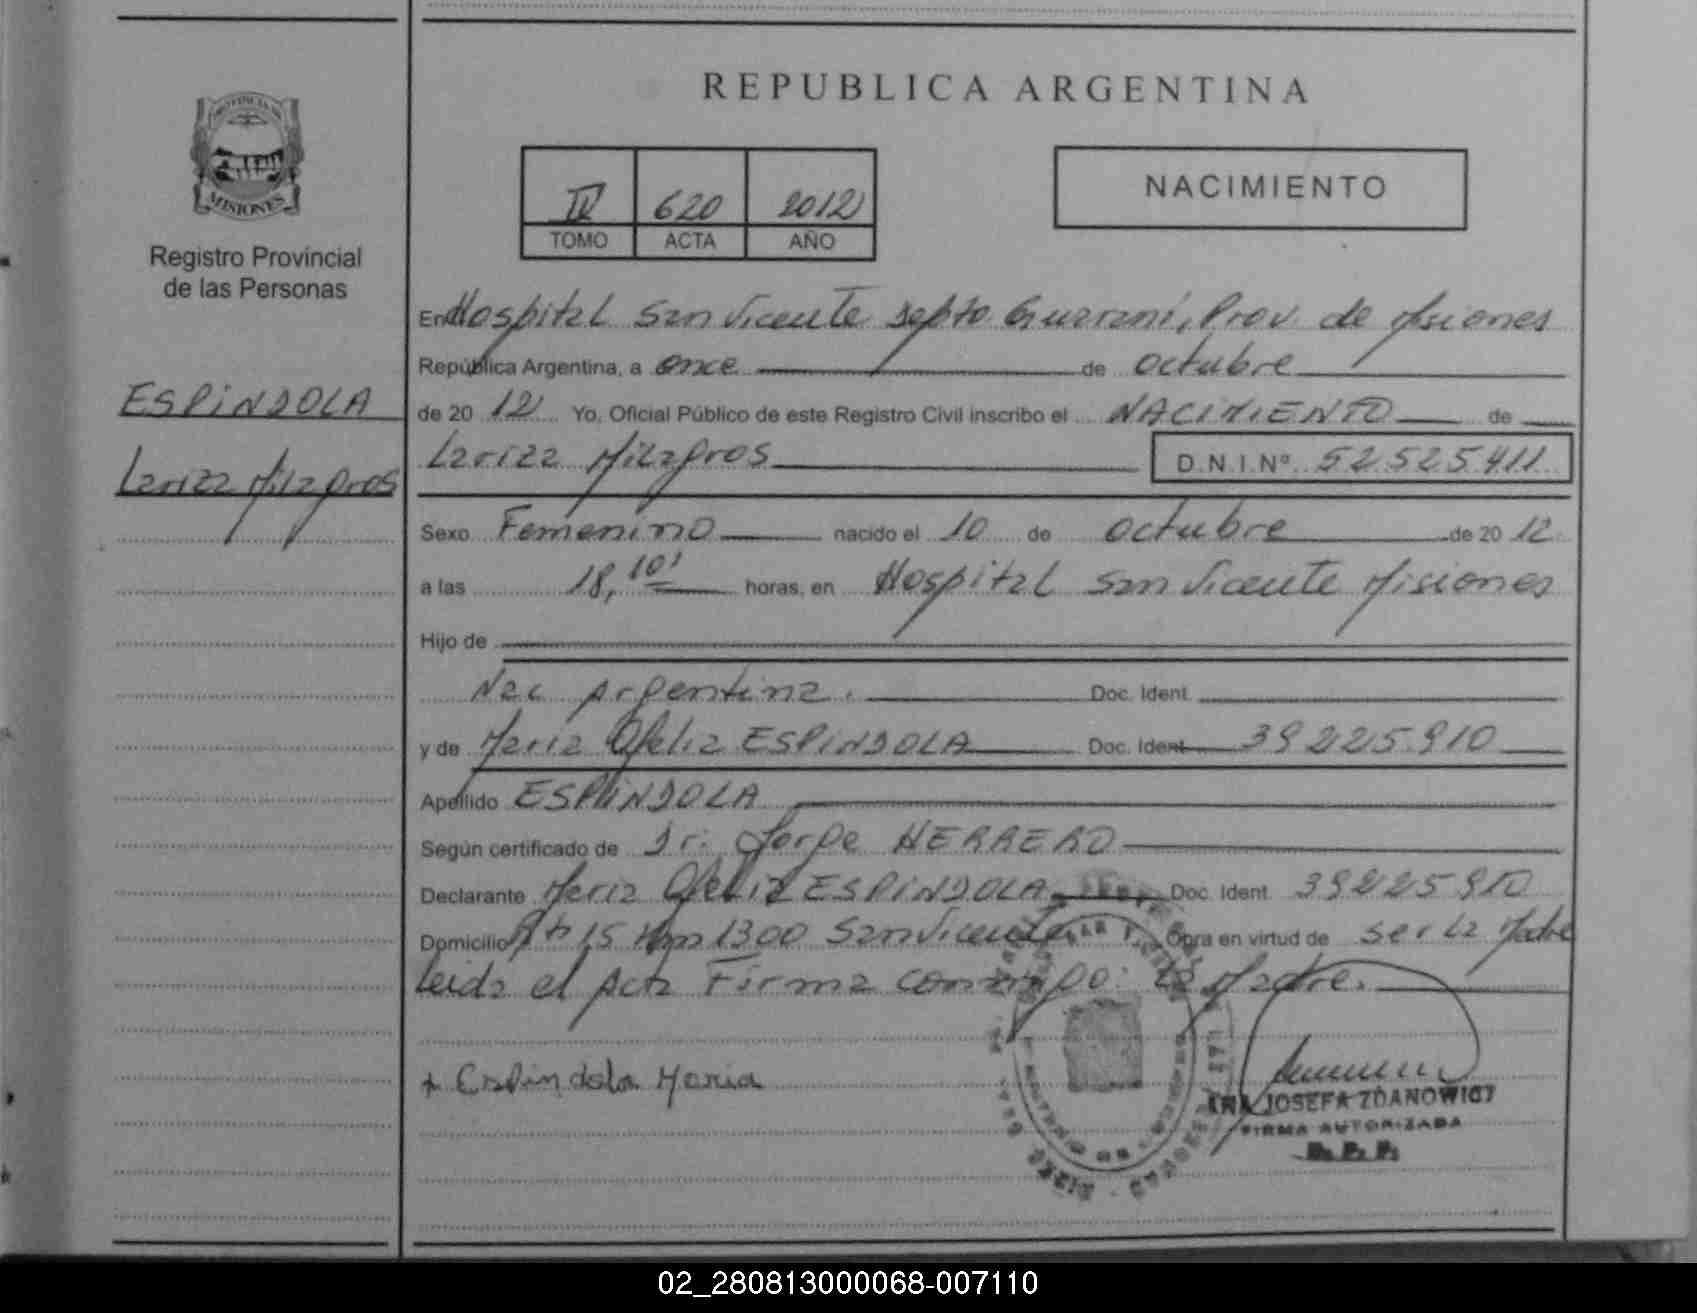 REPUBLICA ARGENTINA
PROVINCIA DE
MISIONES
Registro Provincial
de las Personas
ESPINDOLA
Lariza Milagros
IV 620 2012
TOMO ACTA AÑO
NACIMIENTO
En Hospital San Vicente Depto Guarani, Prov. de Misiones
República Argentina, a once de octubre
de 2012 Yo, Oficial Público de este Registro Civil inscribo el NACIMIENTO de
Lariza Milagros D.N.I.Nº 52525411
Sexo Femenino nacido el 10 de octubre de 2012
a las 18,10' horas, en Hospital San Vicente Misiones
Hijo de
Nac Argentina. Doc. Ident.
y de Maria Ofelia ESPINDOLA Doc. Ident 39225.910
Apellido ESPINDOLA
Según certificado de Dr. Jorge HERRERO
Declarante Maria Ofelia ESPINDOLA Doc. Ident. 39225910
Domicilio 15 1300 San Vicente Obra en virtud de ser la Madre
Leida el Acta Firma conmigo: La Madre.
+ Espindola Maria
ANA JOSEFA ZDANOWICZ
FIRMA AUTORIZADA
R.P.P.
02_280813000068-007110